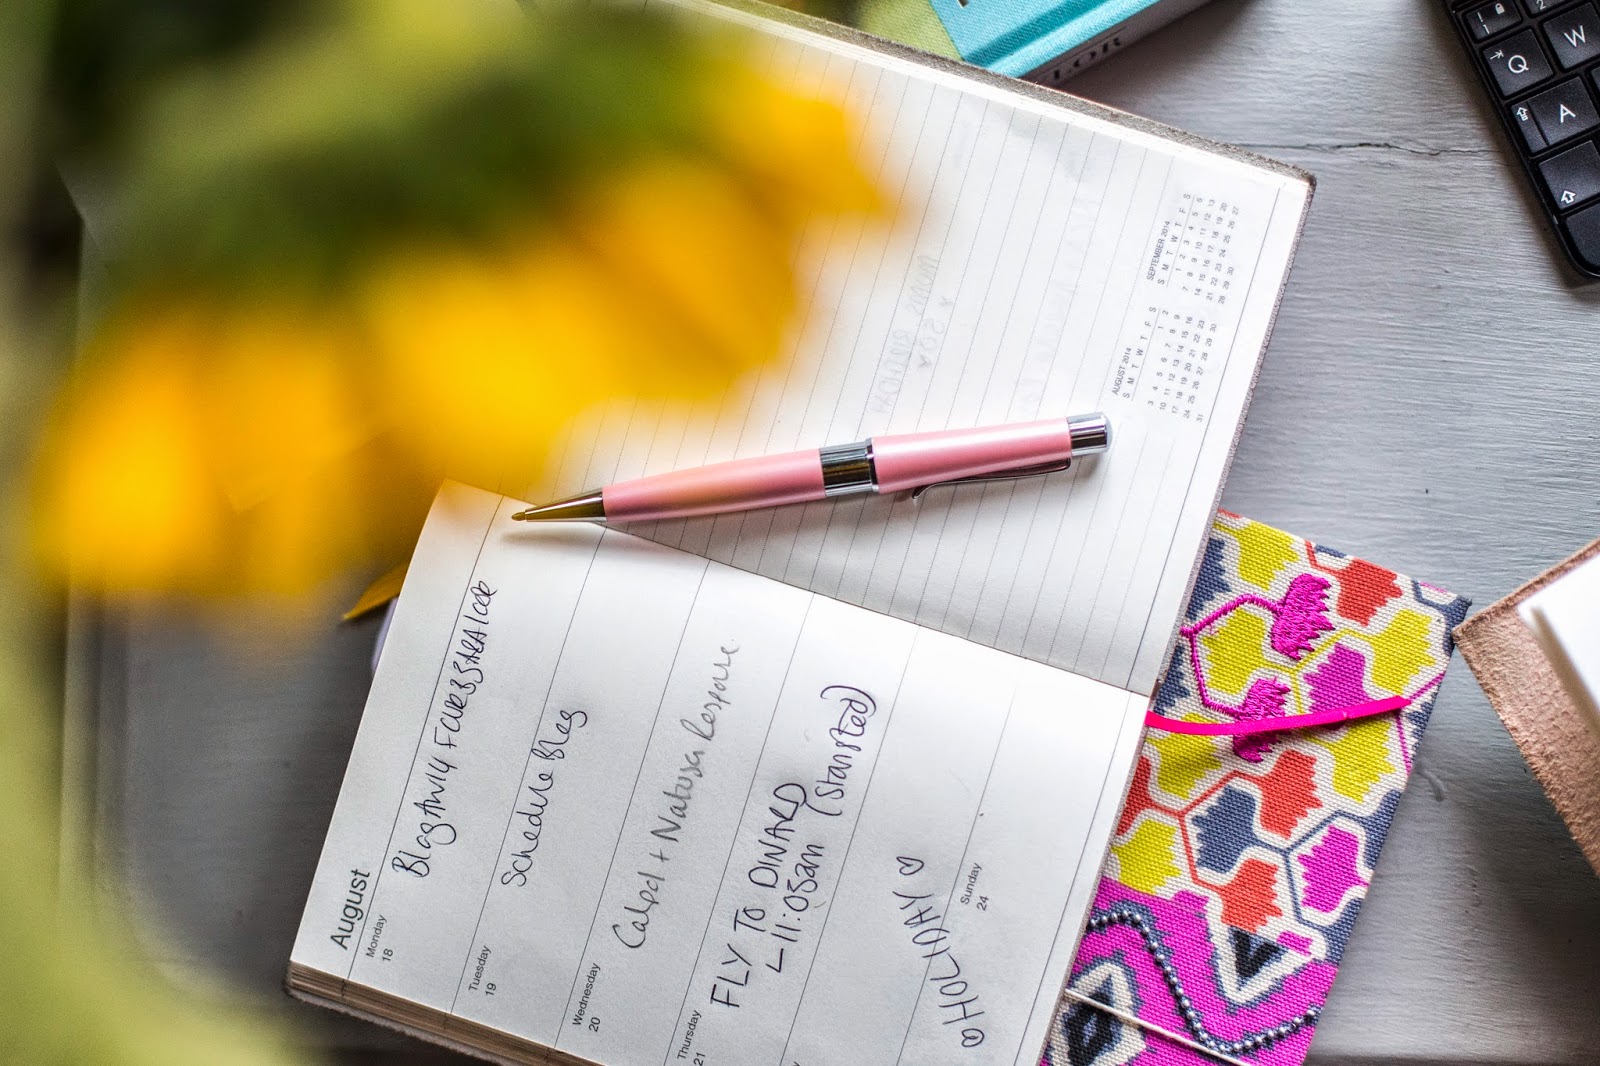 August
Monday
18
Blog
Tuesday
19
Schedule Blog
Wednesday
20
+ Response
Thursday
21
FLY TO DINARD
11:03am (Stansted)
♡HOLIDAY♡
Sunday
24
AUGUST 2014
S M T W T F S
1 2
3 4 5 6 7 8 9
10 11 12 13 14 15 16
17 18 19 20 21 22 23
24 25 26 27 28 29 30
31
SEPTEMBER 2014
S M T W T F S
1 2 3 4 5 6
7 8 9 10 11 12 13
14 15 16 17 18 19 20
21 22 23 24 25 26 27
28 29 30
LOR
Q W
A